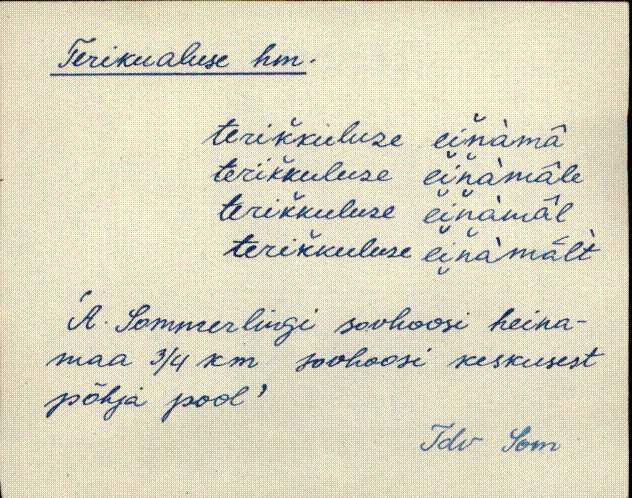 Terikualuse hm.
teriǩkuluse ei̯ǹàmâ
teriǩkuluse ei̯ǹàmâle
teriǩkuluse ei̯ǹàmâl
teriǩkuluse ei̯ǹàmâlt
'A. Sommerlingi sovhoosi heina-
maa 3/4 km sovhoosi keskusest
põhja pool'
Tdv Som